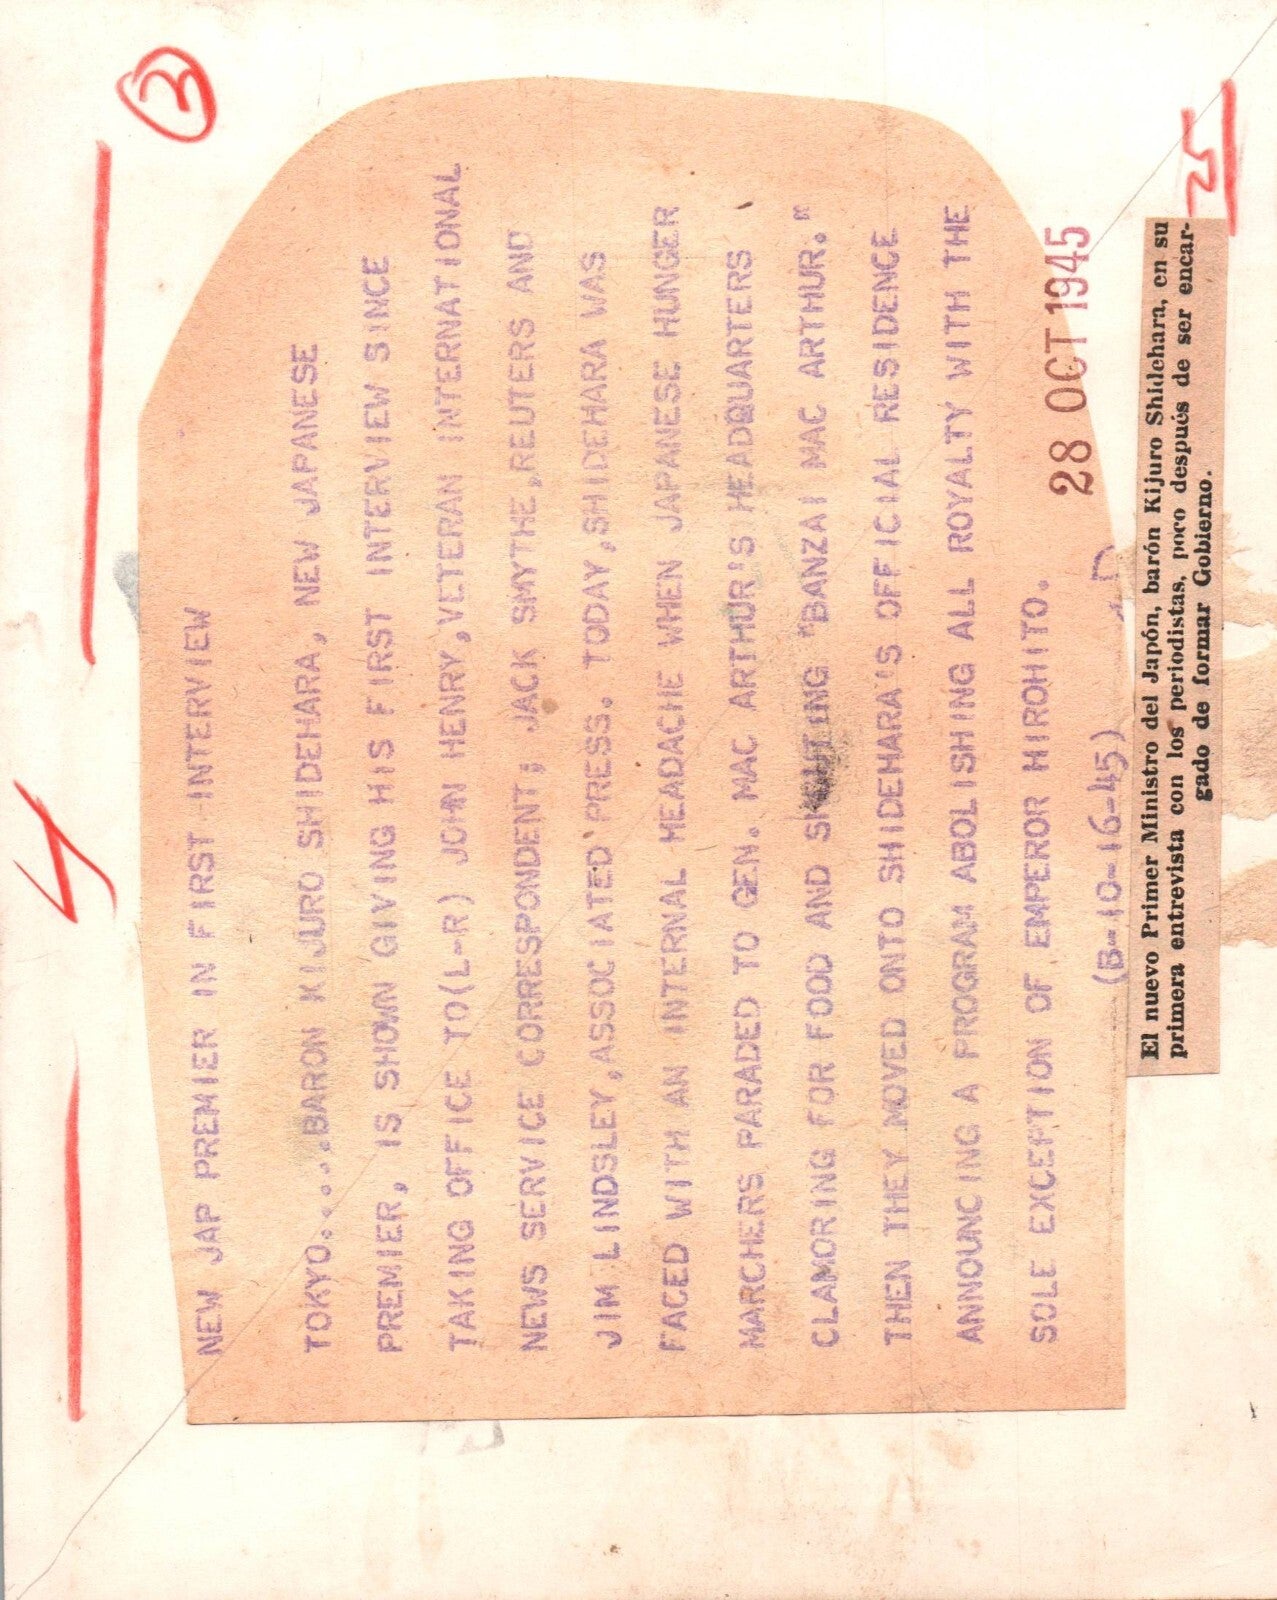 NEW JAP PREMIER IN FIRST INTERVIEW
TOKYO.....BARON KIJURO SHIDEHARA, NEW JAPANESE
PREMIER, IS SHOWN GIVING HIS FIRST INTERVIEW SINCE
TAKING OFFICE TO(L-R) JOHN HENRY,VETERAN INTERNATIONAL
NEWS SERVICE CORRESPONDENT; JACK SMYTHE,REUTERS AND
JIM LINDSLEY,ASSOCIATED PRESS. TODAY,SHIDEHARA WAS
FACED WITH AN INTERNAL HEADACHE WHEN JAPANESE HUNGER
MARCHERS PARADED TO GEN. MAC ARTHUR'S HEADQUARTERS
CLAMORING FOR FOOD AND SHOUTING "BANZAI MAC ARTHUR."
THEN THEY MOVED ONTO SHIDEHARA'S OFFICIAL RESIDENCE
ANNOUNCING A PROGRAM ABOLISHING ALL ROYALTY WITH THE
SOLE EXCEPTION OF EMPEROR HIROHITO.
28 OCT 1945
(B-10-16-45)
El nuevo Primer Ministro del Japón, barón Kijuro Shidehara, en su
primera entrevista con los periodistas, poco después de ser encar-
gado de formar Gobierno.
3
4
25